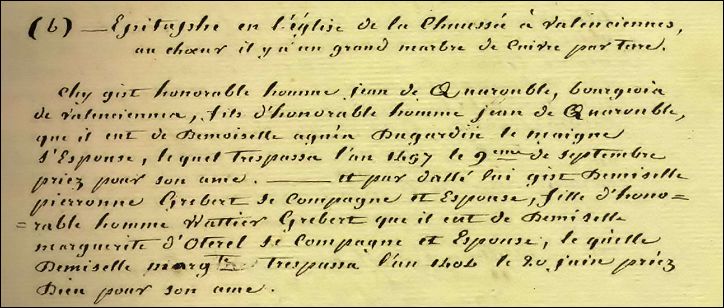 (b) — Epitaphe en l'église de la Chaussé à Valenciennes,
au chœur il y a un grand marbre de Cuivre par terre.
Chy gist honorable homme jean de Quarouble, bourgeois
de valenciennes, fils d'honorable homme jean de Quarouble,
que il eut de Demoiselle agnès Dugardin le maigne
s'Espouse, lequel trespassa l'an 1497 le 9eme de septembre
priez pour son ame. — et par dallé lui gist Demiselle
pierronne Grebert se Compagne et Espouse, fille d'hono=
=rable homme Wattier Grebert que il eut de Demiselle
marguerite d'Oterel se Compagne et Espouse, le quelle
Demiselle trespassa l'an 1404 le 20 juin priez
Dieu pour son ame.